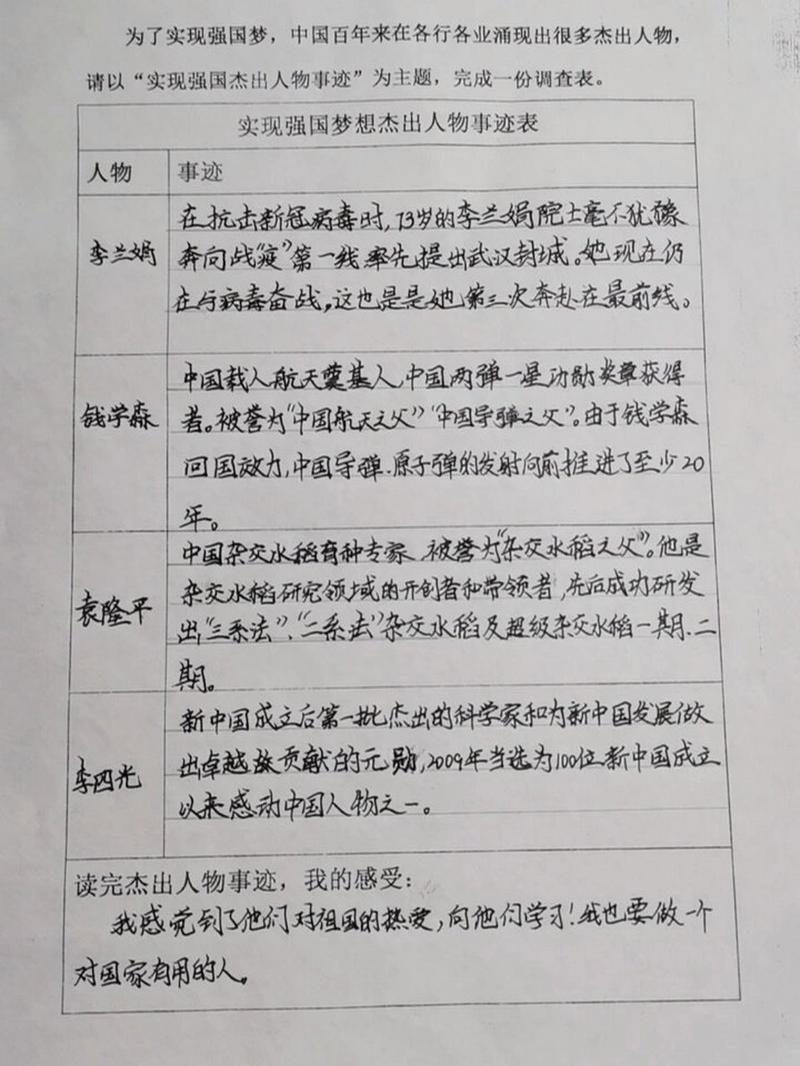 为了实现强国梦，中国百年来在各行各业涌现出很多杰出人物，
请以“实现强国杰出人物事迹”为主题，完成一份调查表。
实现强国梦想杰出人物事迹表
人物 事迹
李兰娟
在抗击新冠病毒时，73岁的李兰娟院士毫不犹豫
奔向战“疫”第一线率先提出武汉封城。她现在仍
在与病毒奋战，这也是是她第三次奔赴在最前线。
钱学森
中国载人航天奠基人，中国两弹一星功勋奖章获得
者。被誉为“中国航天之父”“中国导弹之父”。由于钱学森
回国效力，中国导弹、原子弹的发射向前推进了至少20
年。
袁隆平
中国杂交水稻育种专家，被誉为“杂交水稻之父”。他是
杂交水稻研究领域的开创者和带领者，先后成功研发
出“三系法”、“二系法”杂交水稻及超级杂交水稻一期、二
期。
李四光
新中国成立后第一批杰出的科学家和为新中国发展做
出卓越贡献的元勋，2009年当选为100位新中国成立
以来感动中国人物之一。
读完杰出人物事迹，我的感受：
我感觉到了他们对祖国的热爱，向他们学习！我也要做一个
对国家有用的人。